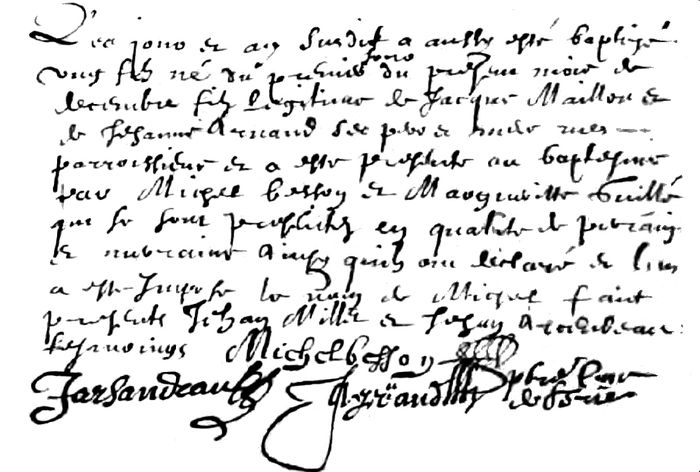 Les jour et an susdit a aussy esté baptizé
ung filz né du premier jour du present mois de
decembre filz legitime de Jacque Maillon et
de Jehanne Arnaud ses pere et mere mes
parroissiens et a esté presenté au baptesme
par Michel besson et Marguerite Guillé
qui se sont presentez en qualité de parain
et maraine Ainsy quilz ont declaré et luy
a esté Imposé le nom de Michel faict
presents Jehan Millet et Jehan
tesmoings Michel besson
Jarsandeau